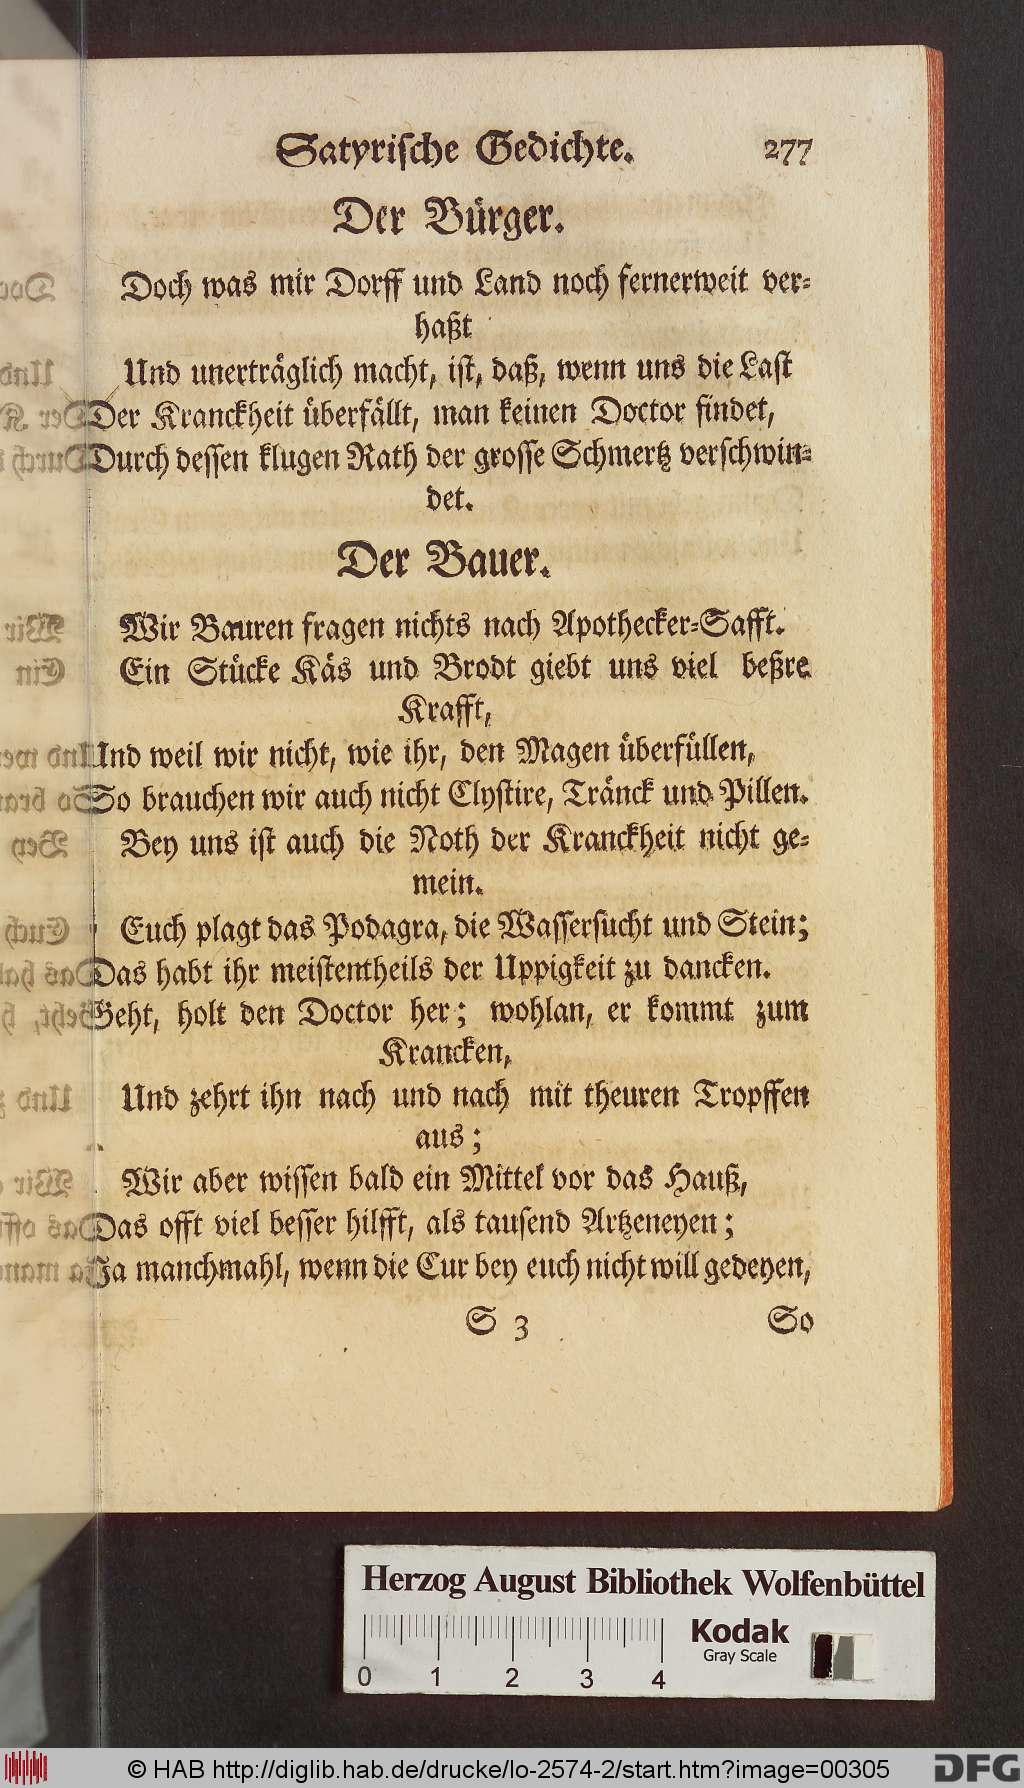 Satyrische Gedichte. 277
Der Bürger.
Doch was mir Dorff und Land noch fernerweit ver-
haßt
Und unerträglich macht, ist, daß, wenn uns die Last
Der Kranckheit überfällt, man keinen Doctor findet,
Durch dessen klugen Rath der grosse Schmertz verschwin-
det.
Der Bauer.
Wir Bauren fragen nichts nach Apothecker-Safft.
Ein Stücke Käs und Brodt giebt uns viel beßre
Krafft,
Und weil wir nicht, wie ihr, den Magen überfüllen,
So brauchen wir auch nicht Clystire, Tränck und Pillen.
Bey uns ist auch die Noth der Kranckheit nicht ge-
mein.
Euch plagt das Podagra, die Wassersucht und Stein;
Das habt ihr meistentheils der Uppigkeit zu dancken.
Geht, holt den Doctor her; wohlan, er kommt zum
Krancken,
Und zehrt ihn nach und nach mit theuren Tropffen
aus;
Wir aber wissen bald ein Mittel vor das Hauß,
Das offt viel besser hilfft, als tausend Artzeneyen;
Ja manchmahl, wenn die Cur bey euch nicht will gedeyen,
S 3 So
Herzog August Bibliothek Wolfenbüttel
Kodak
Gray Scale
0 1 2 3 4
© HAB http://diglib.hab.de/drucke/lo-2574-2/start.htm?image=00305
DFG